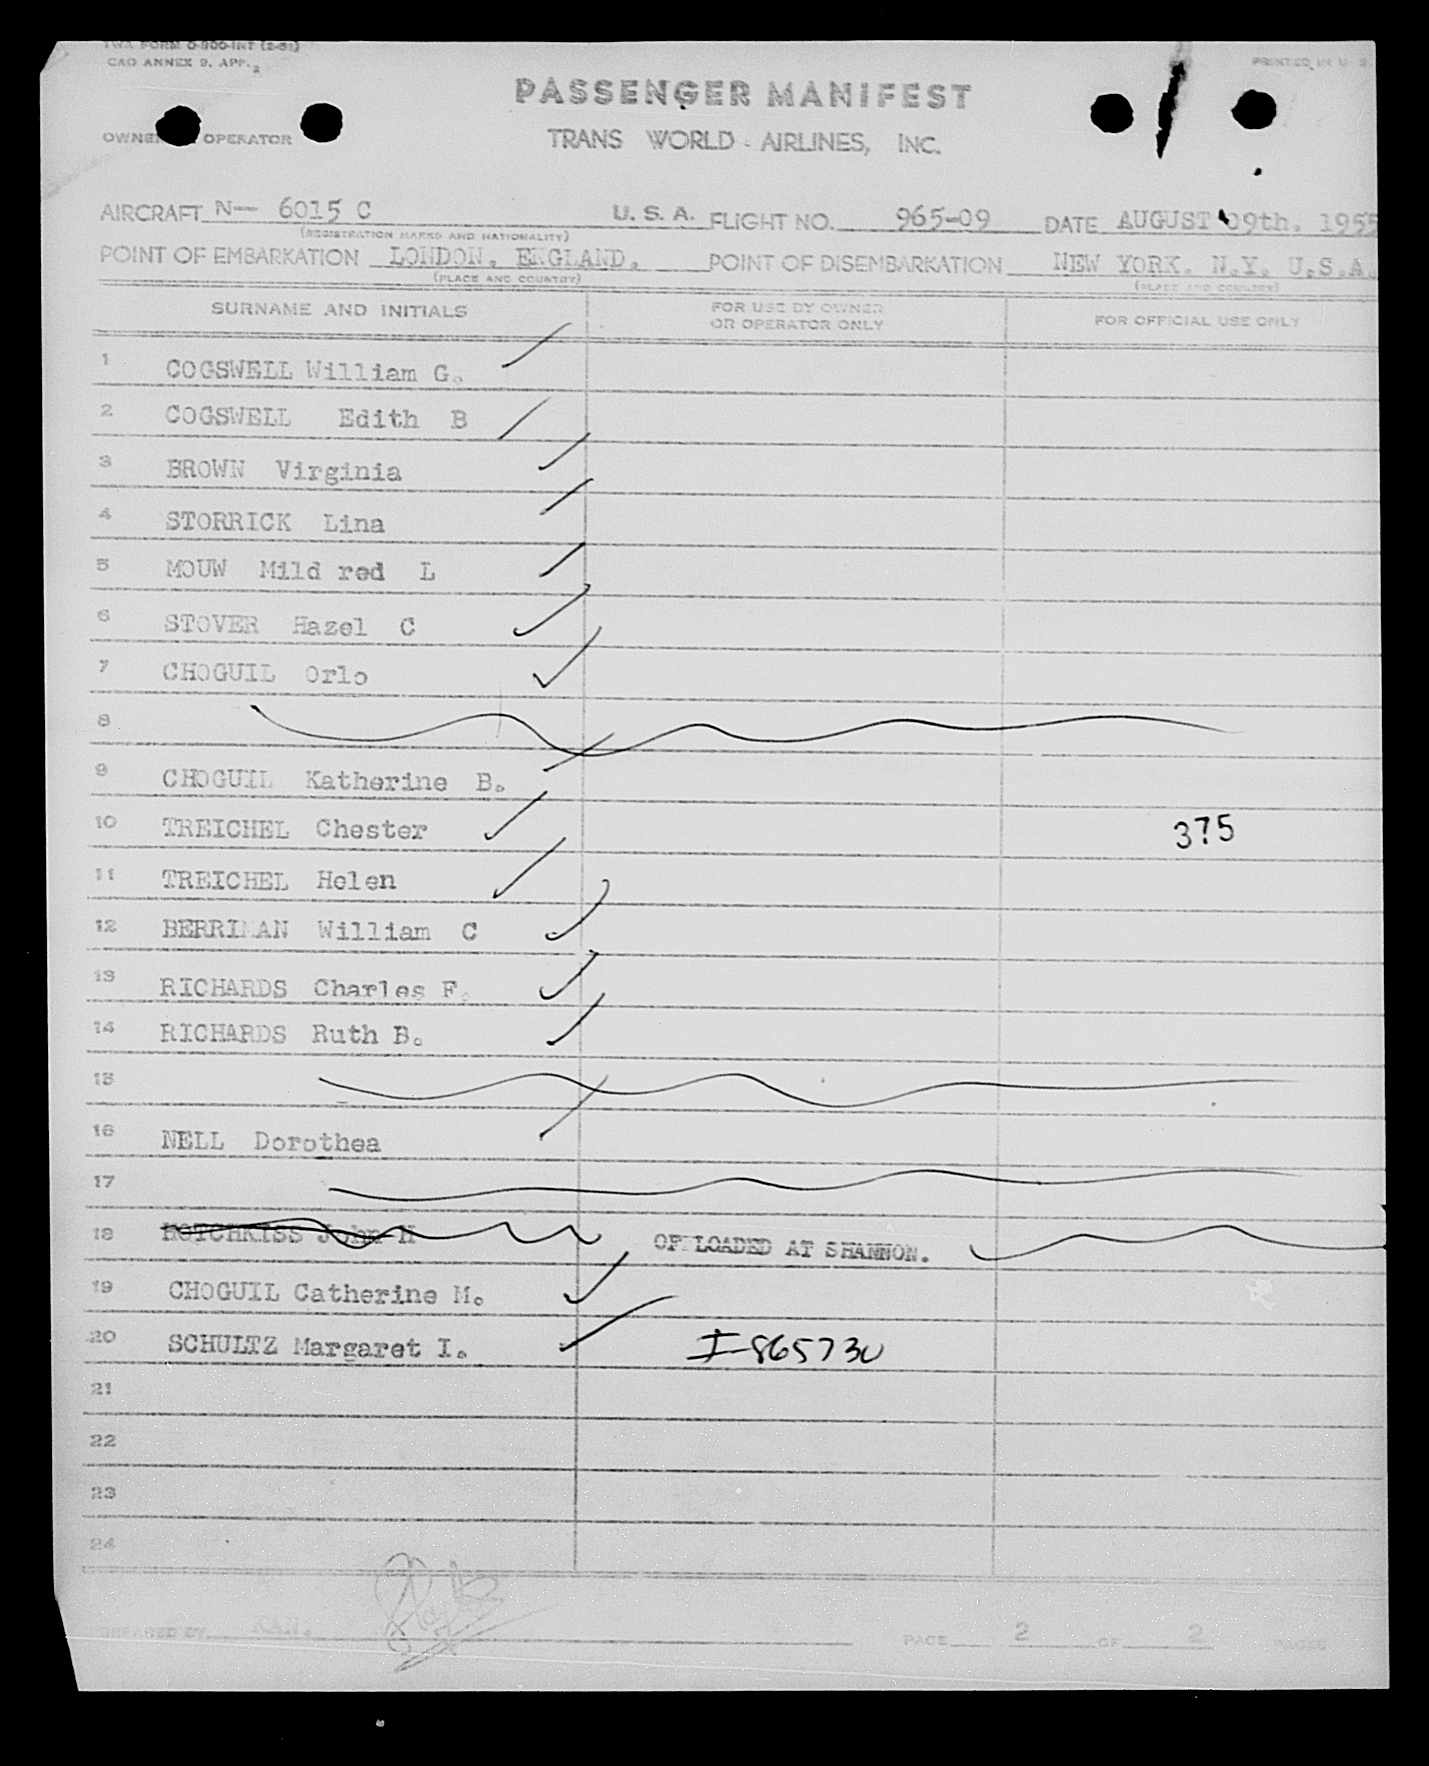 TWA FORM O-800-INT (2-51)
CAO ANNEX 9, APP. 2
PRINTED IN U. S.
PASSENGER MANIFEST
OPERATOR
TRANS WORLD AIRLINES, INC.
AIRCRAFT N-- 6015 C U. S. A. FLIGHT NO. 965-09 DATE AUGUST 09th. 1955
(REGISTRATION MARKS AND NATIONALITY)
POINT OF EMBARKATION LONDON. ENGLAND. POINT OF DISEMBARKATION NEW YORK. N.Y. U.S.A.
(PLACE AND COUNTRY) (PLACE AND COUNTRY)
SURNAME AND INITIALS FOR USE BY OWNER OR OPERATOR ONLY FOR OFFICIAL USE ONLY
1 COGSWELL William G.
2 COGSWELL Edith B
3 BROWN Virginia
4 STORRICK Lina
5 MOUW Mild red L
6 STOVER Hazel C
7 CHOGUIL Orlo
8
9 CHOGUIL Katherine B.
10 TREICHEL Chester 375
11 TREICHEL Helen
12 BERRIMAN William C
13 RICHARDS Charles F.
14 RICHARDS Ruth B.
15
16 NELL Dorothea
17
18 HOTCHKISS John H OFFLOADED AT SHANNON.
19 CHOGUIL Catherine M.
20 SCHULTZ Margaret I. I-865730
21
22
23
24
PREPARED BY PAGE 2 OF 2 PAGES